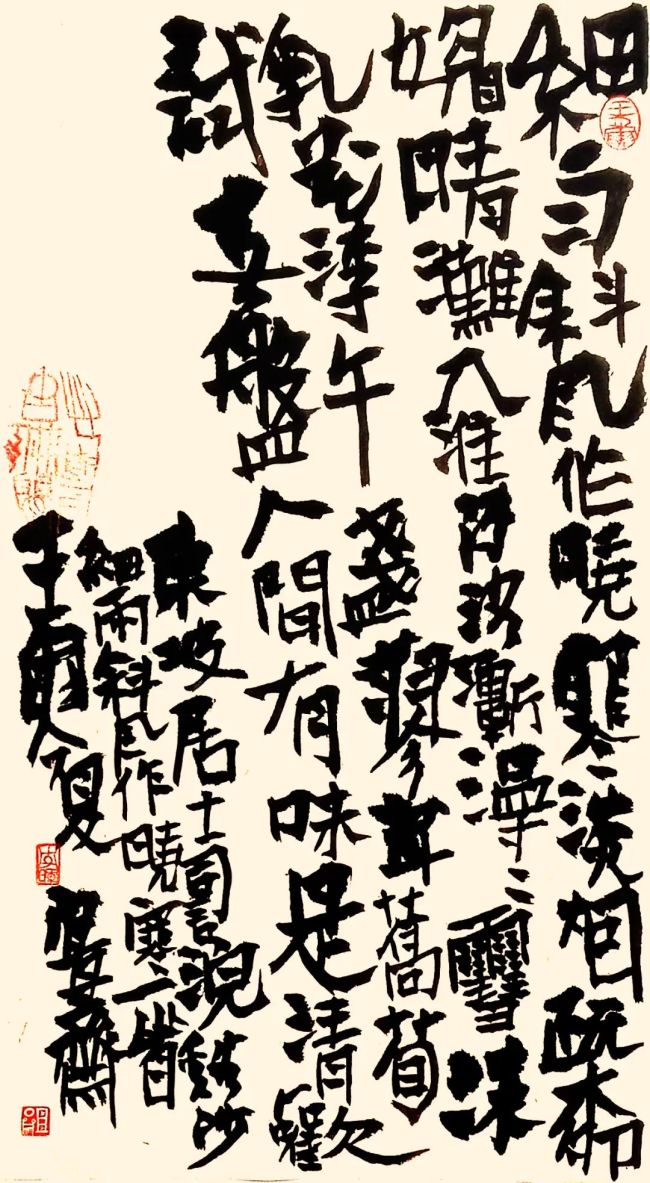 細雨斜风作曉寒淡烟疏柳
媚晴灘入淮清洛漸漫〻雪沫
乳花浮午盞蓼茸蒿筍
試春盤人間有味是清歡
東坡居士詞浣溪沙
細雨斜风作曉寒一首
壬寅夏齋